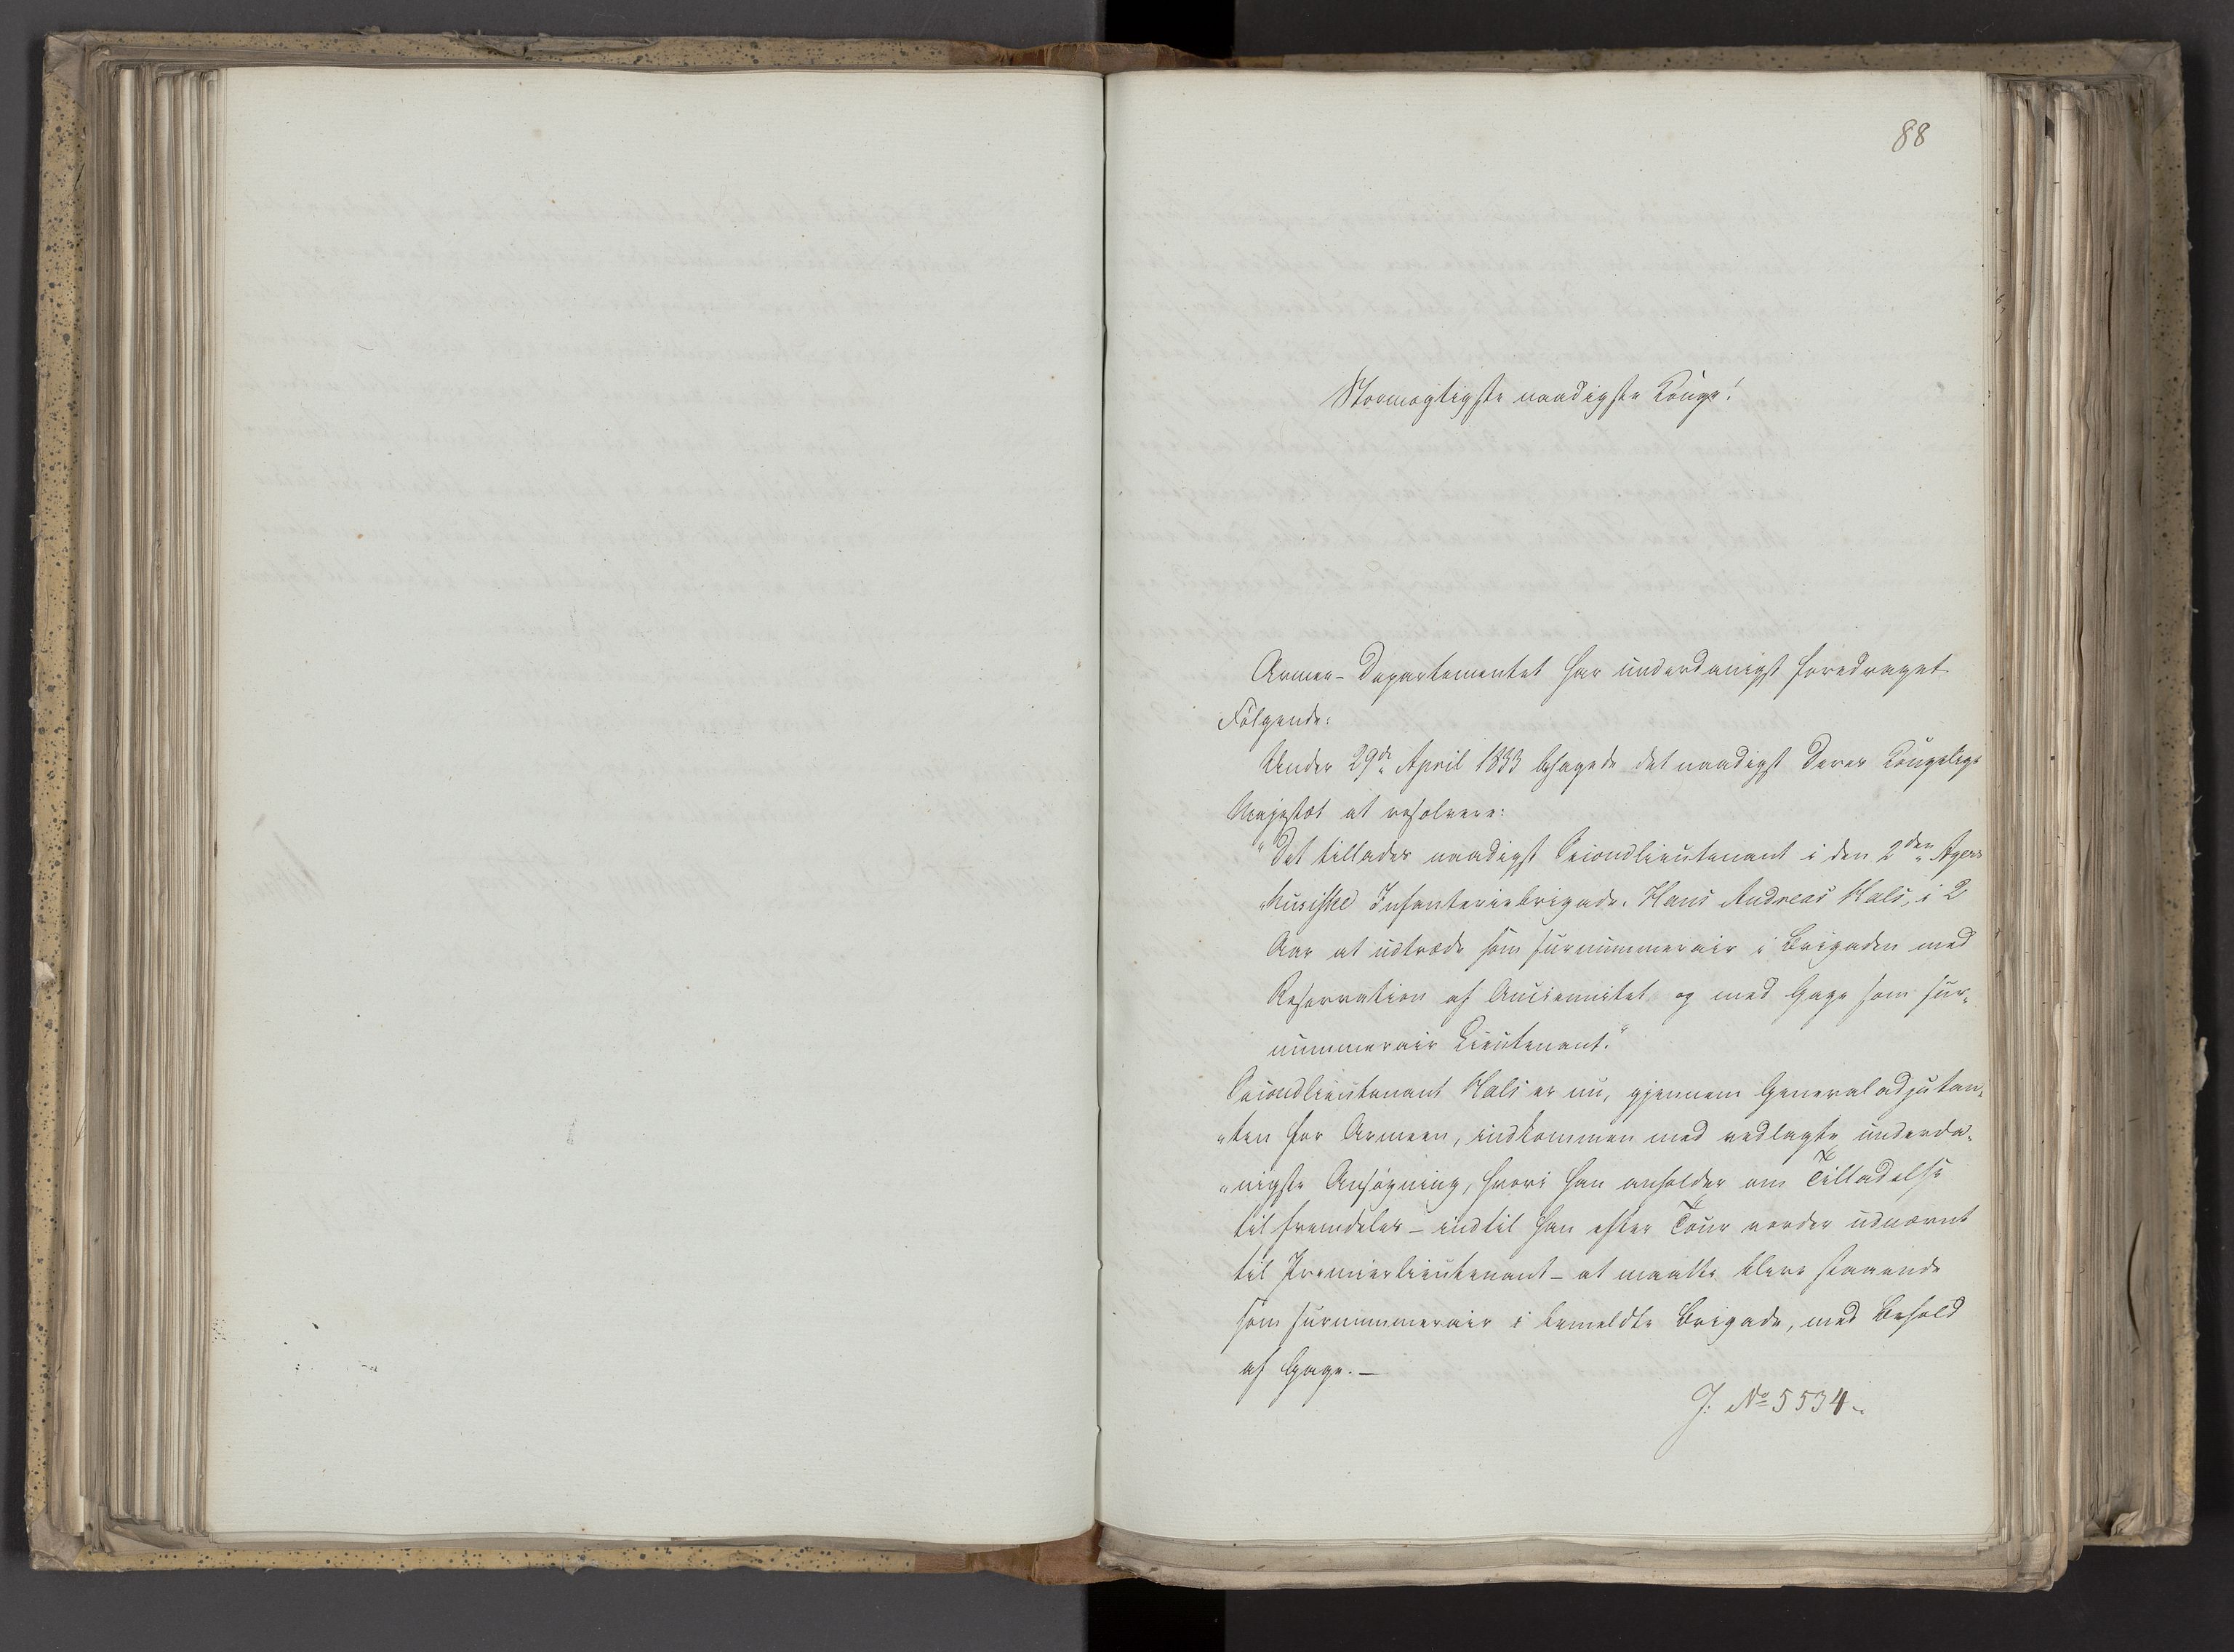 88
Stormægtigste naadigste Konge!
Armee-Departementet har underdanigst foredraget
Følgende:
Under 29de April 1833 behagede det naadigst Deres Kongelige
Majestæt at resolvere:
"Det tillades naadigst Secondlieutenant i den 2den Agers
"huusiske Infanteriebrigade, Hans Andreas Hals, i 2
Aar at udtræde som surnummerair i Brigaden med
Reservation af Anciennitet og med Gage som sur-
nummerair Lieutenant."
Secondlieutenant Hals er nu, gjennem Generaladjutan-
"ten for Armeen, indkommen med vedlagte underda-
"nigste Ansøgning, hvori han anholder om Tilladelse
til fremdeles - indtil han efter Tour vorder udnævnt
til Premierlieutenant - at maatte blive staaende
som surnummerair i bemeldte Brigade, med Behold
af Gage. -
J. No 5534.